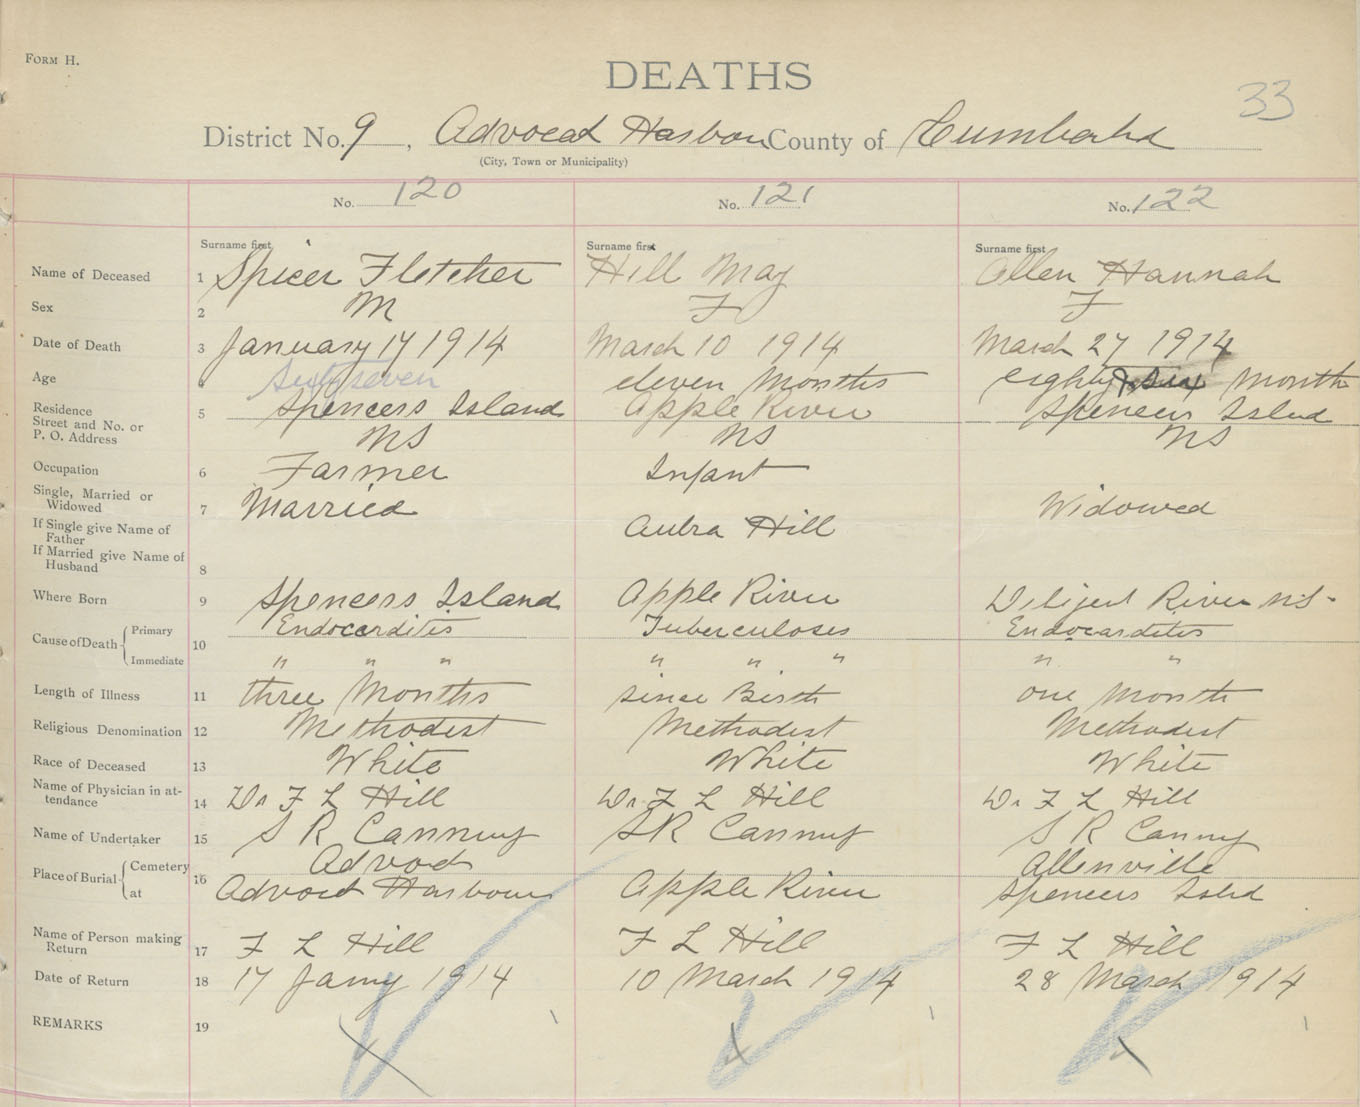 FORM H.
DEATHS
33
District No. 9, Advocat Harbour County of Cumberlad
(City, Town or Municipality)
No. 120 No. 121 No. 122
Surname first Surname first Surname first
Name of Deceased 1 Spicer Fletcher Hill May Allen Hannah
Sex 2 M F F
Date of Death 3 January 17 1914 March 10 1914 March 27 1914
Age 4 Sixty seven eleven Months eighty & six Month
Residence Street and No. or P. O. Address 5 Spencers Island Apple River Spencers Islnd
NS NS NS
Occupation 6 Farmer Infant
Single, Married or Widowed 7 Married Widowed
If Single give Name of Father Aubra Hill
If Married give Name of Husband 8
Where Born 9 Spencers Island Apple River Diligent River NS-
Cause of Death Primary 10 Endocarditis Tuberculoses Endocarditis
Immediate " " " " " " " "
Length of Illness 11 three Months since Birth one Month
Religious Denomination 12 Methodist Methodist Methodist
Race of Deceased 13 White White White
Name of Physician in attendance 14 Dr F L Hill Dr F L Hill Dr F L Hill
Name of Undertaker 15 S R Canning S R Canning S R Canning
Place of Burial Cemetery 16 Advoct Allenville
at Advoct Harbour Apple River Spencers Islnd
Name of Person making Return 17 F L Hill F L Hill F L Hill
Date of Return 18 17 Jany 1914 10 March 1914 28 March 1914
REMARKS 19